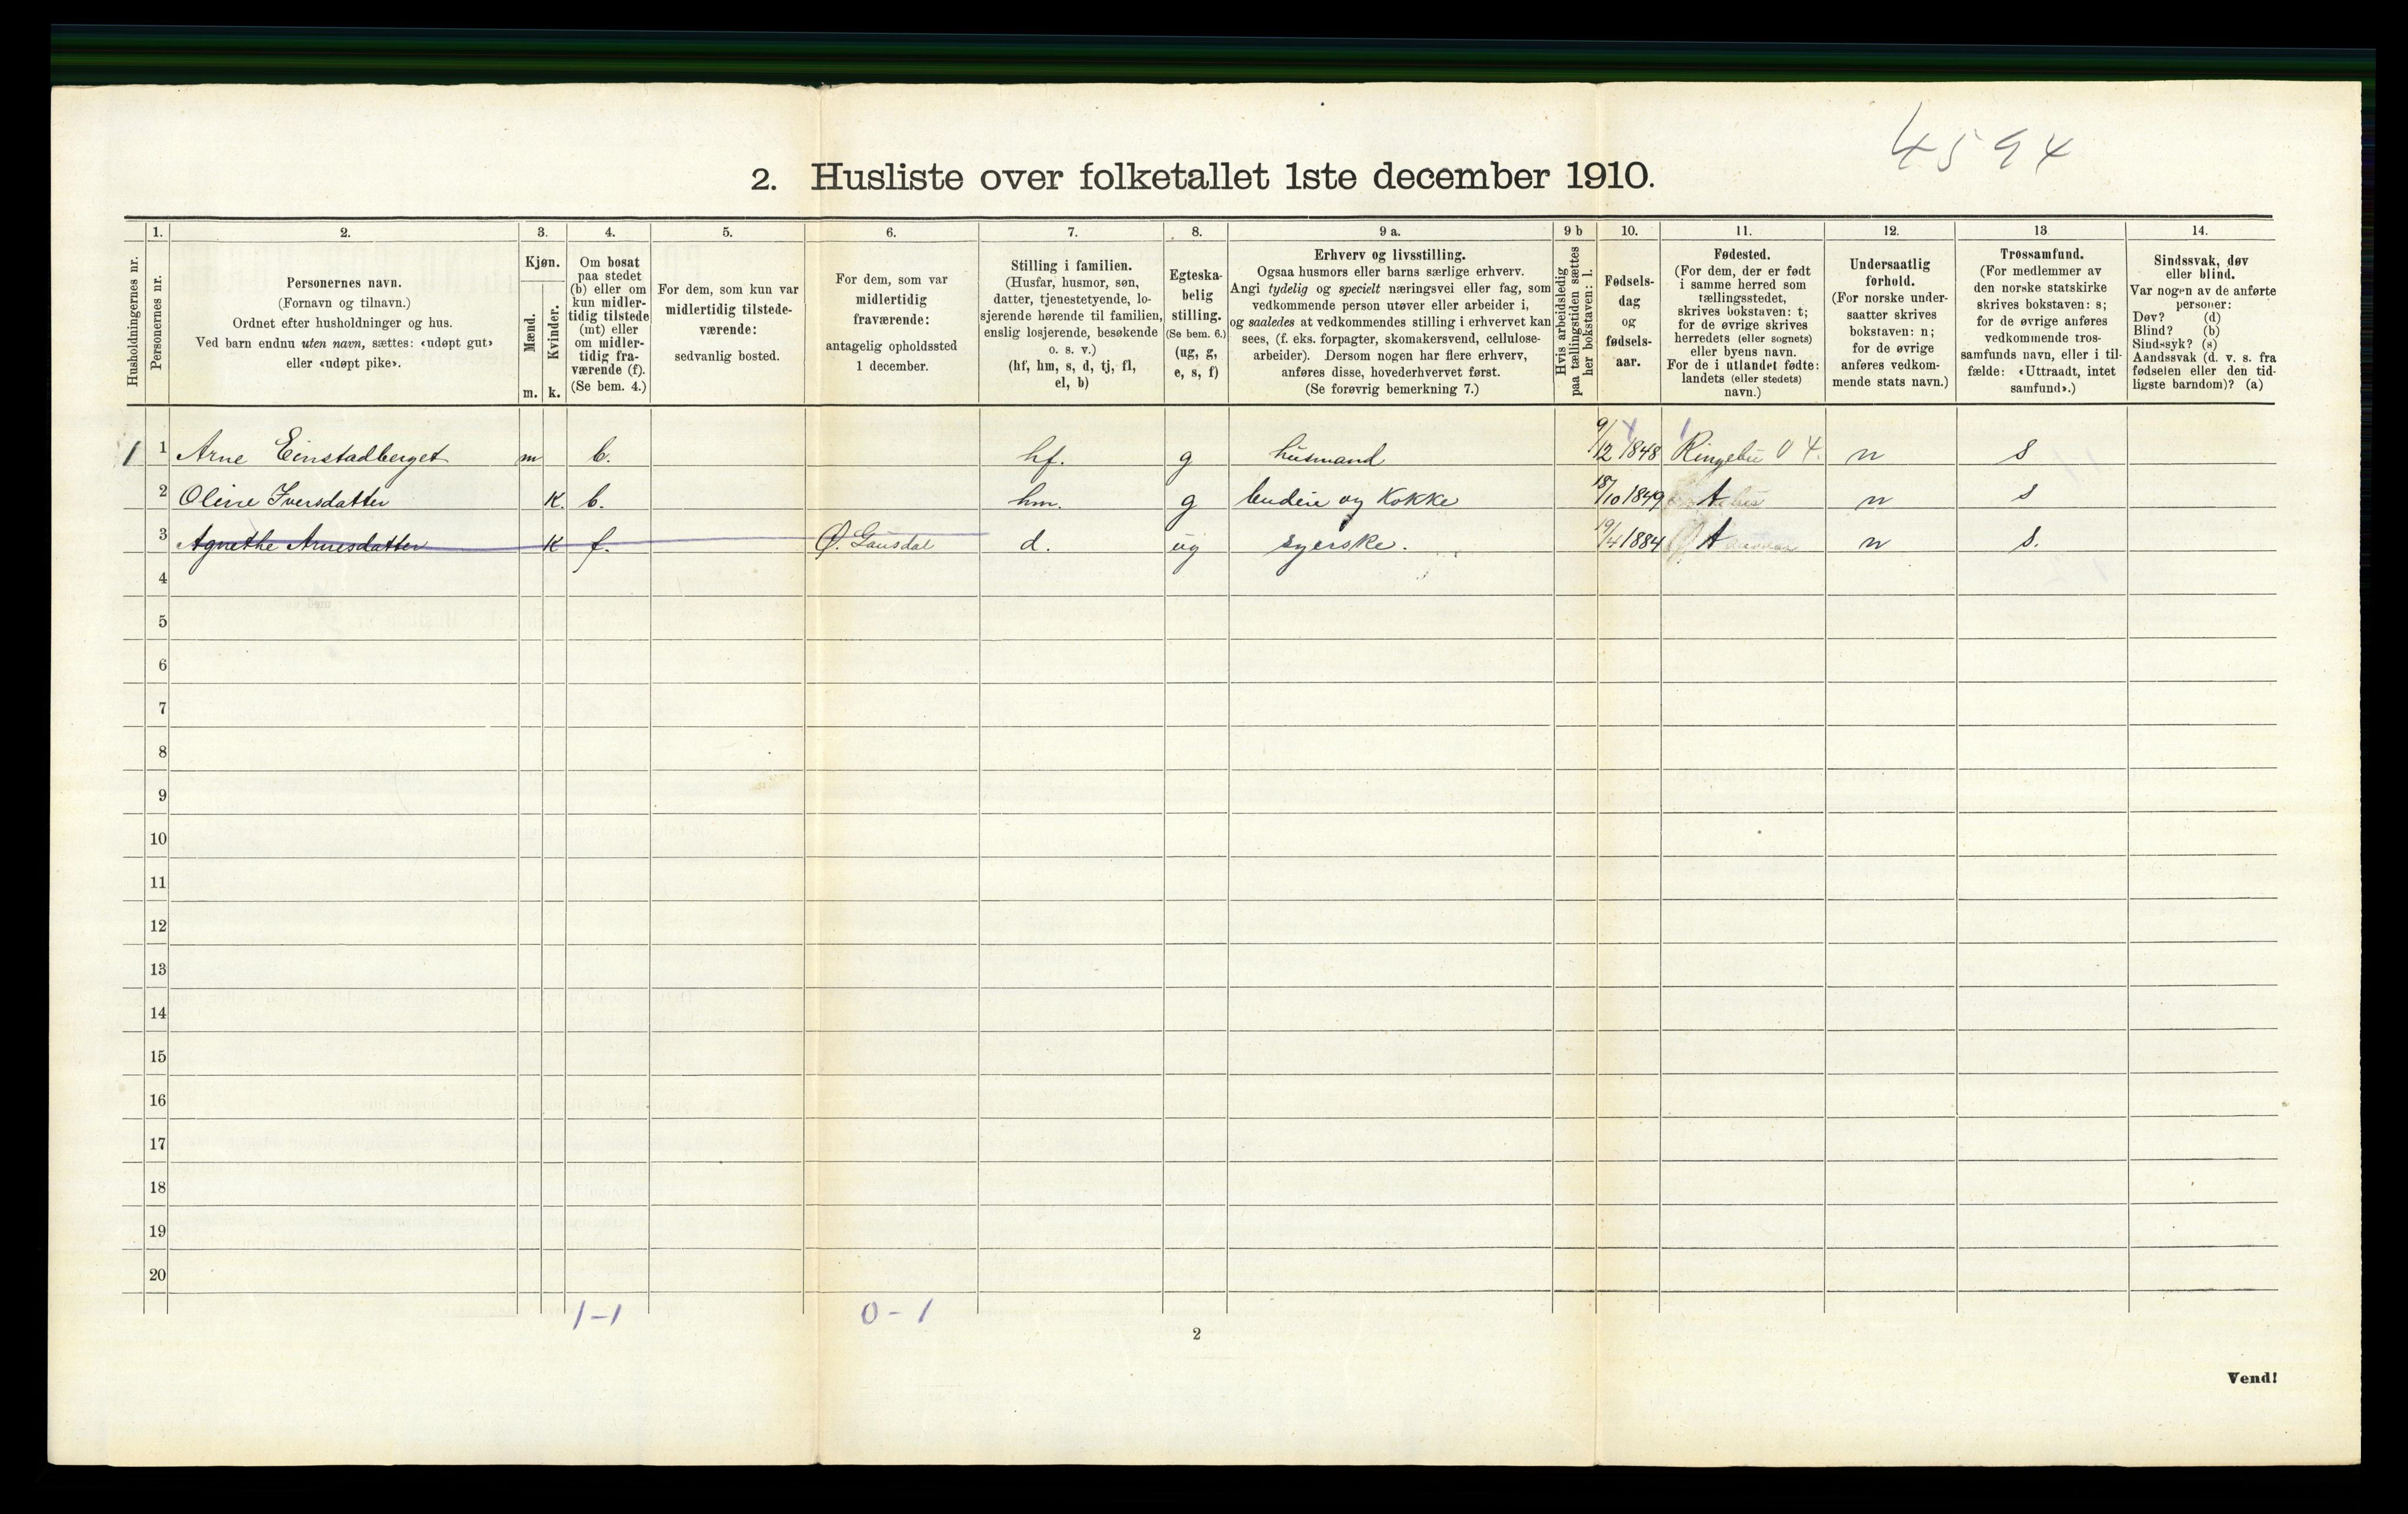 4594
2. Husliste over folketallet 1ste december 1910.
Husholdningernes nr.
1.
Personernes nr.
2.
Personernes navn.
(Fornavn og tilnavn.)
Ordnet efter husholdninger og hus.
Ved barn endnu uten navn, sættes: «udøpt gut»
eller «udøpt pike».
3.
Kjøn.
Mænd.
Kvinder.
m. k.
4.
Om bosat
paa stedet
(b) eller om
kun midler-
tidig tilstede
(mt) eller
om midler-
tidig fra-
værende (f).
(Se bem. 4.)
5.
For dem, som kun var
midlertidig tilstede-
værende:
sedvanlig bosted.
6.
For dem, som var
midlertidig
fraværende:
antagelig opholdssted
1 december.
7.
Stilling i familien.
(Husfar, husmor, søn,
datter, tjenestetyende, lo-
sjerende hørende til familien,
enslig losjerende, besøkende
o. s. v.)
(hf, hm, s, d, tj, fl,
el, b)
8.
Egteska-
belig
stilling.
(Se bem. 6.)
(ug, g,
e, s, f)
9 a.
Erhverv og livsstilling.
Ogsaa husmors eller barns særlige erhverv.
Angi tydelig og specielt næringsvei eller fag, som
vedkommende person utøver eller arbeider i,
og saaledes at vedkommendes stilling i erhvervet kan
sees, (f. eks. forpagter, skomakersvend, cellulose-
arbeider). Dersom nogen har flere erhverv,
anføres disse, hovederhvervet først.
(Se forøvrig bemerkning 7.)
9 b
Hvis arbeidsledig
paa tællingstiden sættes
her bokstaven: l.
10.
Fødsels-
dag
og
fødsels-
aar.
11.
Fødested.
(For dem, der er født
i samme herred som
tællingsstedet,
skrives bokstaven: t;
for de øvrige skrives
herredets (eller sognets)
eller byens navn.
For de i utlandet fødte:
landets (eller stedets)
navn.)
12.
Undersaatlig
forhold.
(For norske under-
saatter skrives
bokstaven: n;
for de øvrige
anføres vedkom-
mende stats navn.)
13
Trossamfund.
(For medlemmer av
den norske statskirke
skrives bokstaven: s;
for de øvrige anføres
vedkommende tros-
samfunds navn, eller i til-
fælde: «Uttraadt, intet
samfund».)
14.
Sindssvak, døv
eller blind.
Var nogen av de anførte
personer:
Døv? (d)
Blind? (b)
Sindssyk? (s)
Aandssvak (d. v. s. fra
fødselen eller den tid-
ligste barndom)? (a)
1 1 Arne Einstadberget m b. hf. g husmand 9/12 1848 Ringebu 04. n s
2 Oline Iversdatter K. b. hm. g budeie og Kokke 18/10 1849 t n s
3 Agnethe Arnesdatter K f. Ø. Gausdal d. ug syerske. 19/4 1884 t n s.
4
5
6
7
8
9
10
11
12
13
14
15
16
17
18
19
20
1-1 0-1
2
Vend!